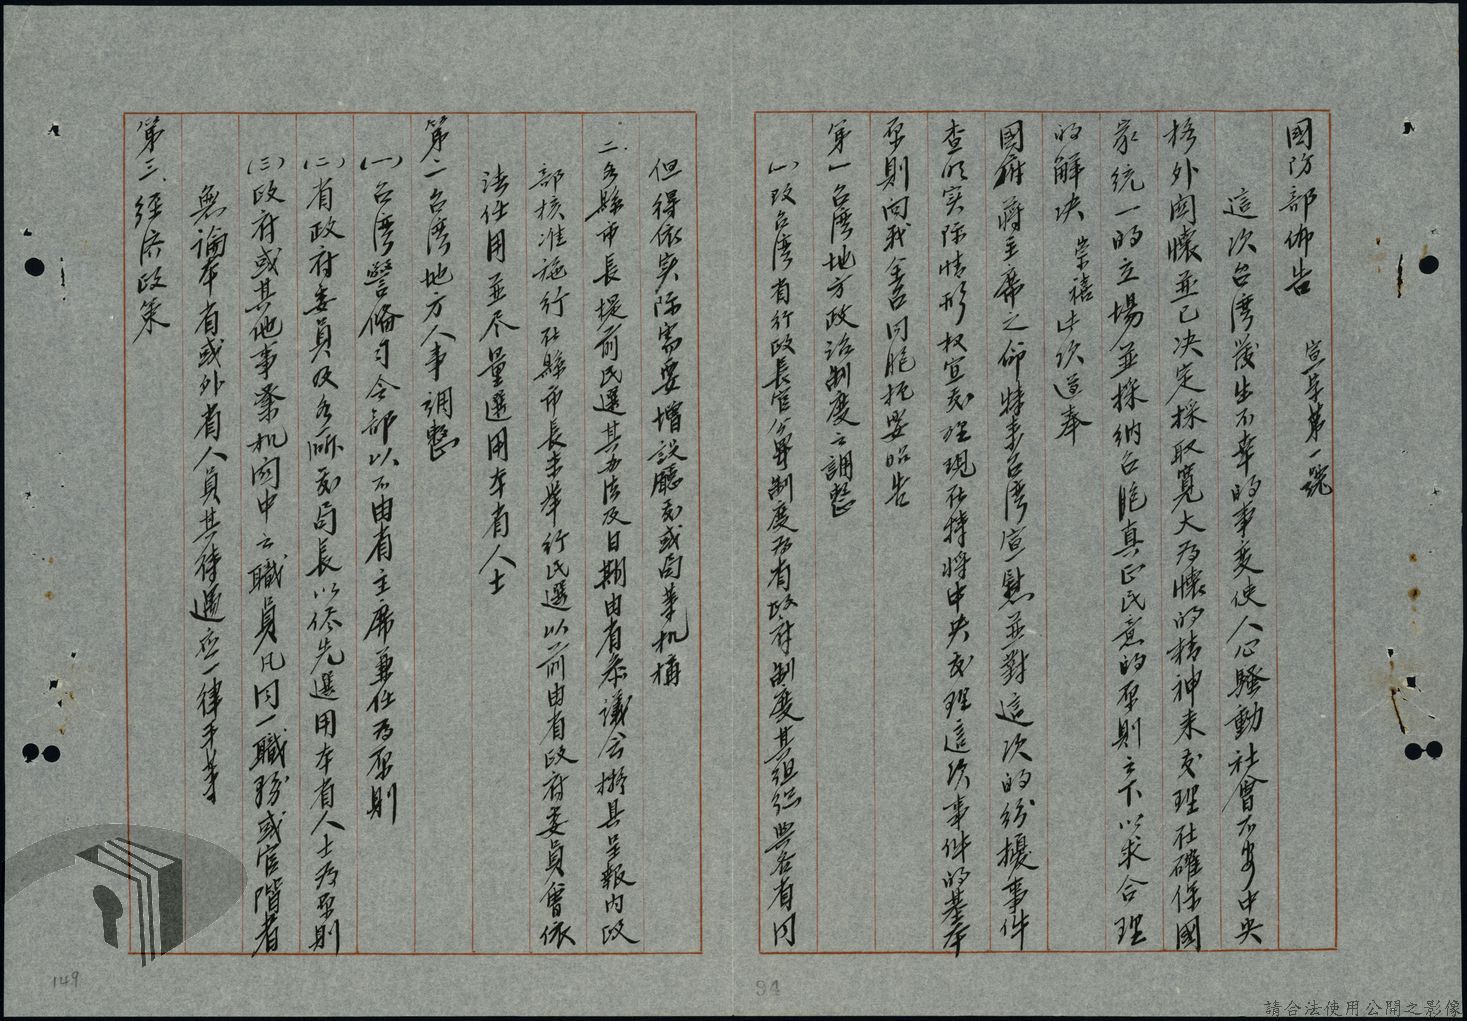 國防部佈告
宣字第一號
這次台灣發生不幸的事变使人心騷動社會不安中央
格外関懷並已决定採取寬大為懷的精神来处理在確保國
家統一的立場並採納台胞真正民意的原則之下以求合理
的解决 崇禧此次遵奉
國府蔣主席之命特来台灣宣慰並對這次的紛擾事件
查明实际情形权宜处理現在特將中央处理這次事件的基本
原則向我全台同胞扼要昭告
第一台灣地方政治制度之調整
(一)改台灣省行政長官公署制度為省政府制度其組織與各省同
但得依实际需要增設廳处或局等机構
二.各縣市長提前民選其办法及日期由省参議会擬具呈報内政
部核准施行在縣市長未举行民選以前由省政府委員會依
法任用並尽量選用本省人士
第二台湾地方人事調整
(一)台湾警備司令部以不由省主席兼任為原則
(二)省政府委員及各厛处局長以侭先選用本省人士為原則
(三)政府或其他事業机関中之職員凡同一職務或官階者
無論本省或外省人員其待遇应一律平等
第三.經济政策
149
94
請合法使用公開之影像